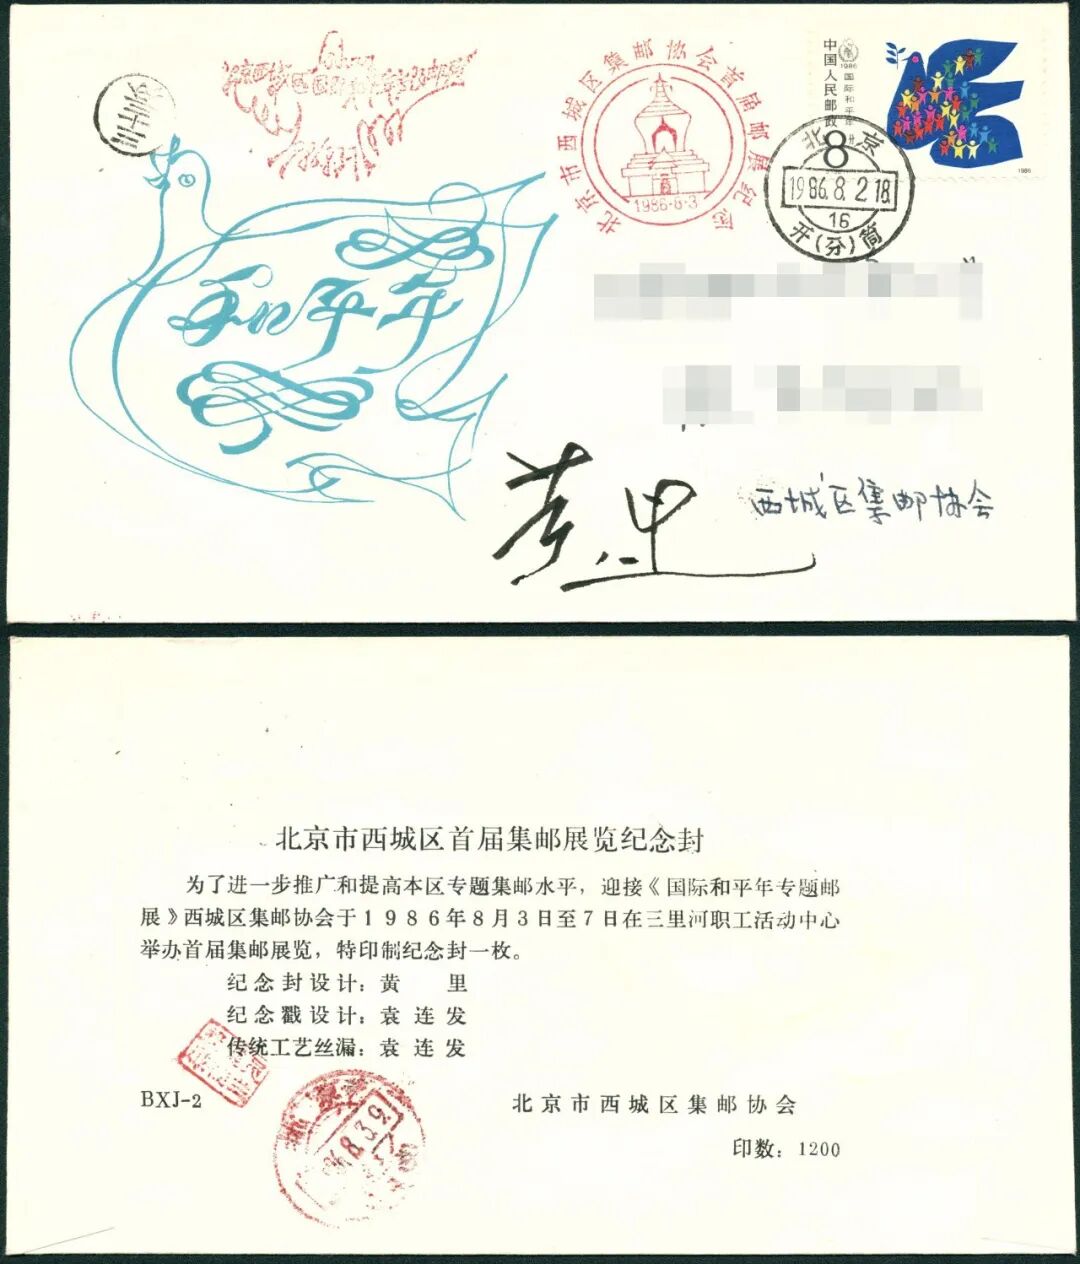 北京市西城区集邮协会首届邮展纪念
1986·8·3
中国人民邮政
1986国际和平年
8分
1986
北京
1986.8.2.18
16
开(分)筒
和平年
黄里
西城区集邮协会
北京市西城区首届集邮展览纪念封
为了进一步推广和提高本区专题集邮水平，迎接《国际和平年专题邮
展》西城区集邮协会于1986年8月3日至7日在三里河职工活动中心
举办首届集邮展览，特印制纪念封一枚。
纪念封设计：黄 里
纪念戳设计：袁连发
传统工艺丝漏：袁连发
BXJ-2
北京市西城区集邮协会
印数：1200